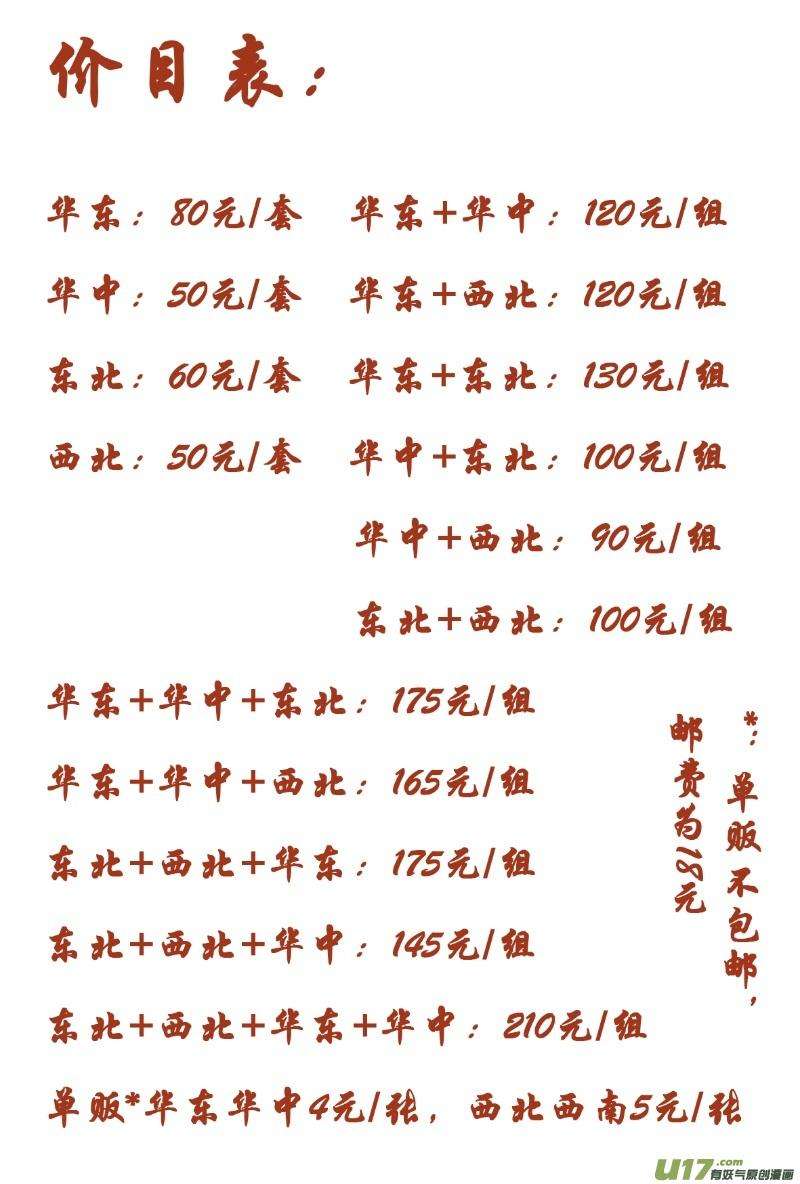 价目表：
华东：80元/套 华东+华中：120元/组
华中：50元/套 华东+西北：120元/组
东北：60元/套 华东+东北：130元/组
西北：50元/套 华中+东北：100元/组
华中+西北：90元/组
东北+西北：100元/组
华东+华中+东北：175元/组
华东+华中+西北：165元/组
东北+西北+华东：175元/组
东北+西北+华中：145元/组
东北+西北+华东+华中：210元/组
*：单贩不包邮，
邮费为18元
单贩*华东华中4元/张，西北西南5元/张
U17.com
有妖气原创漫画